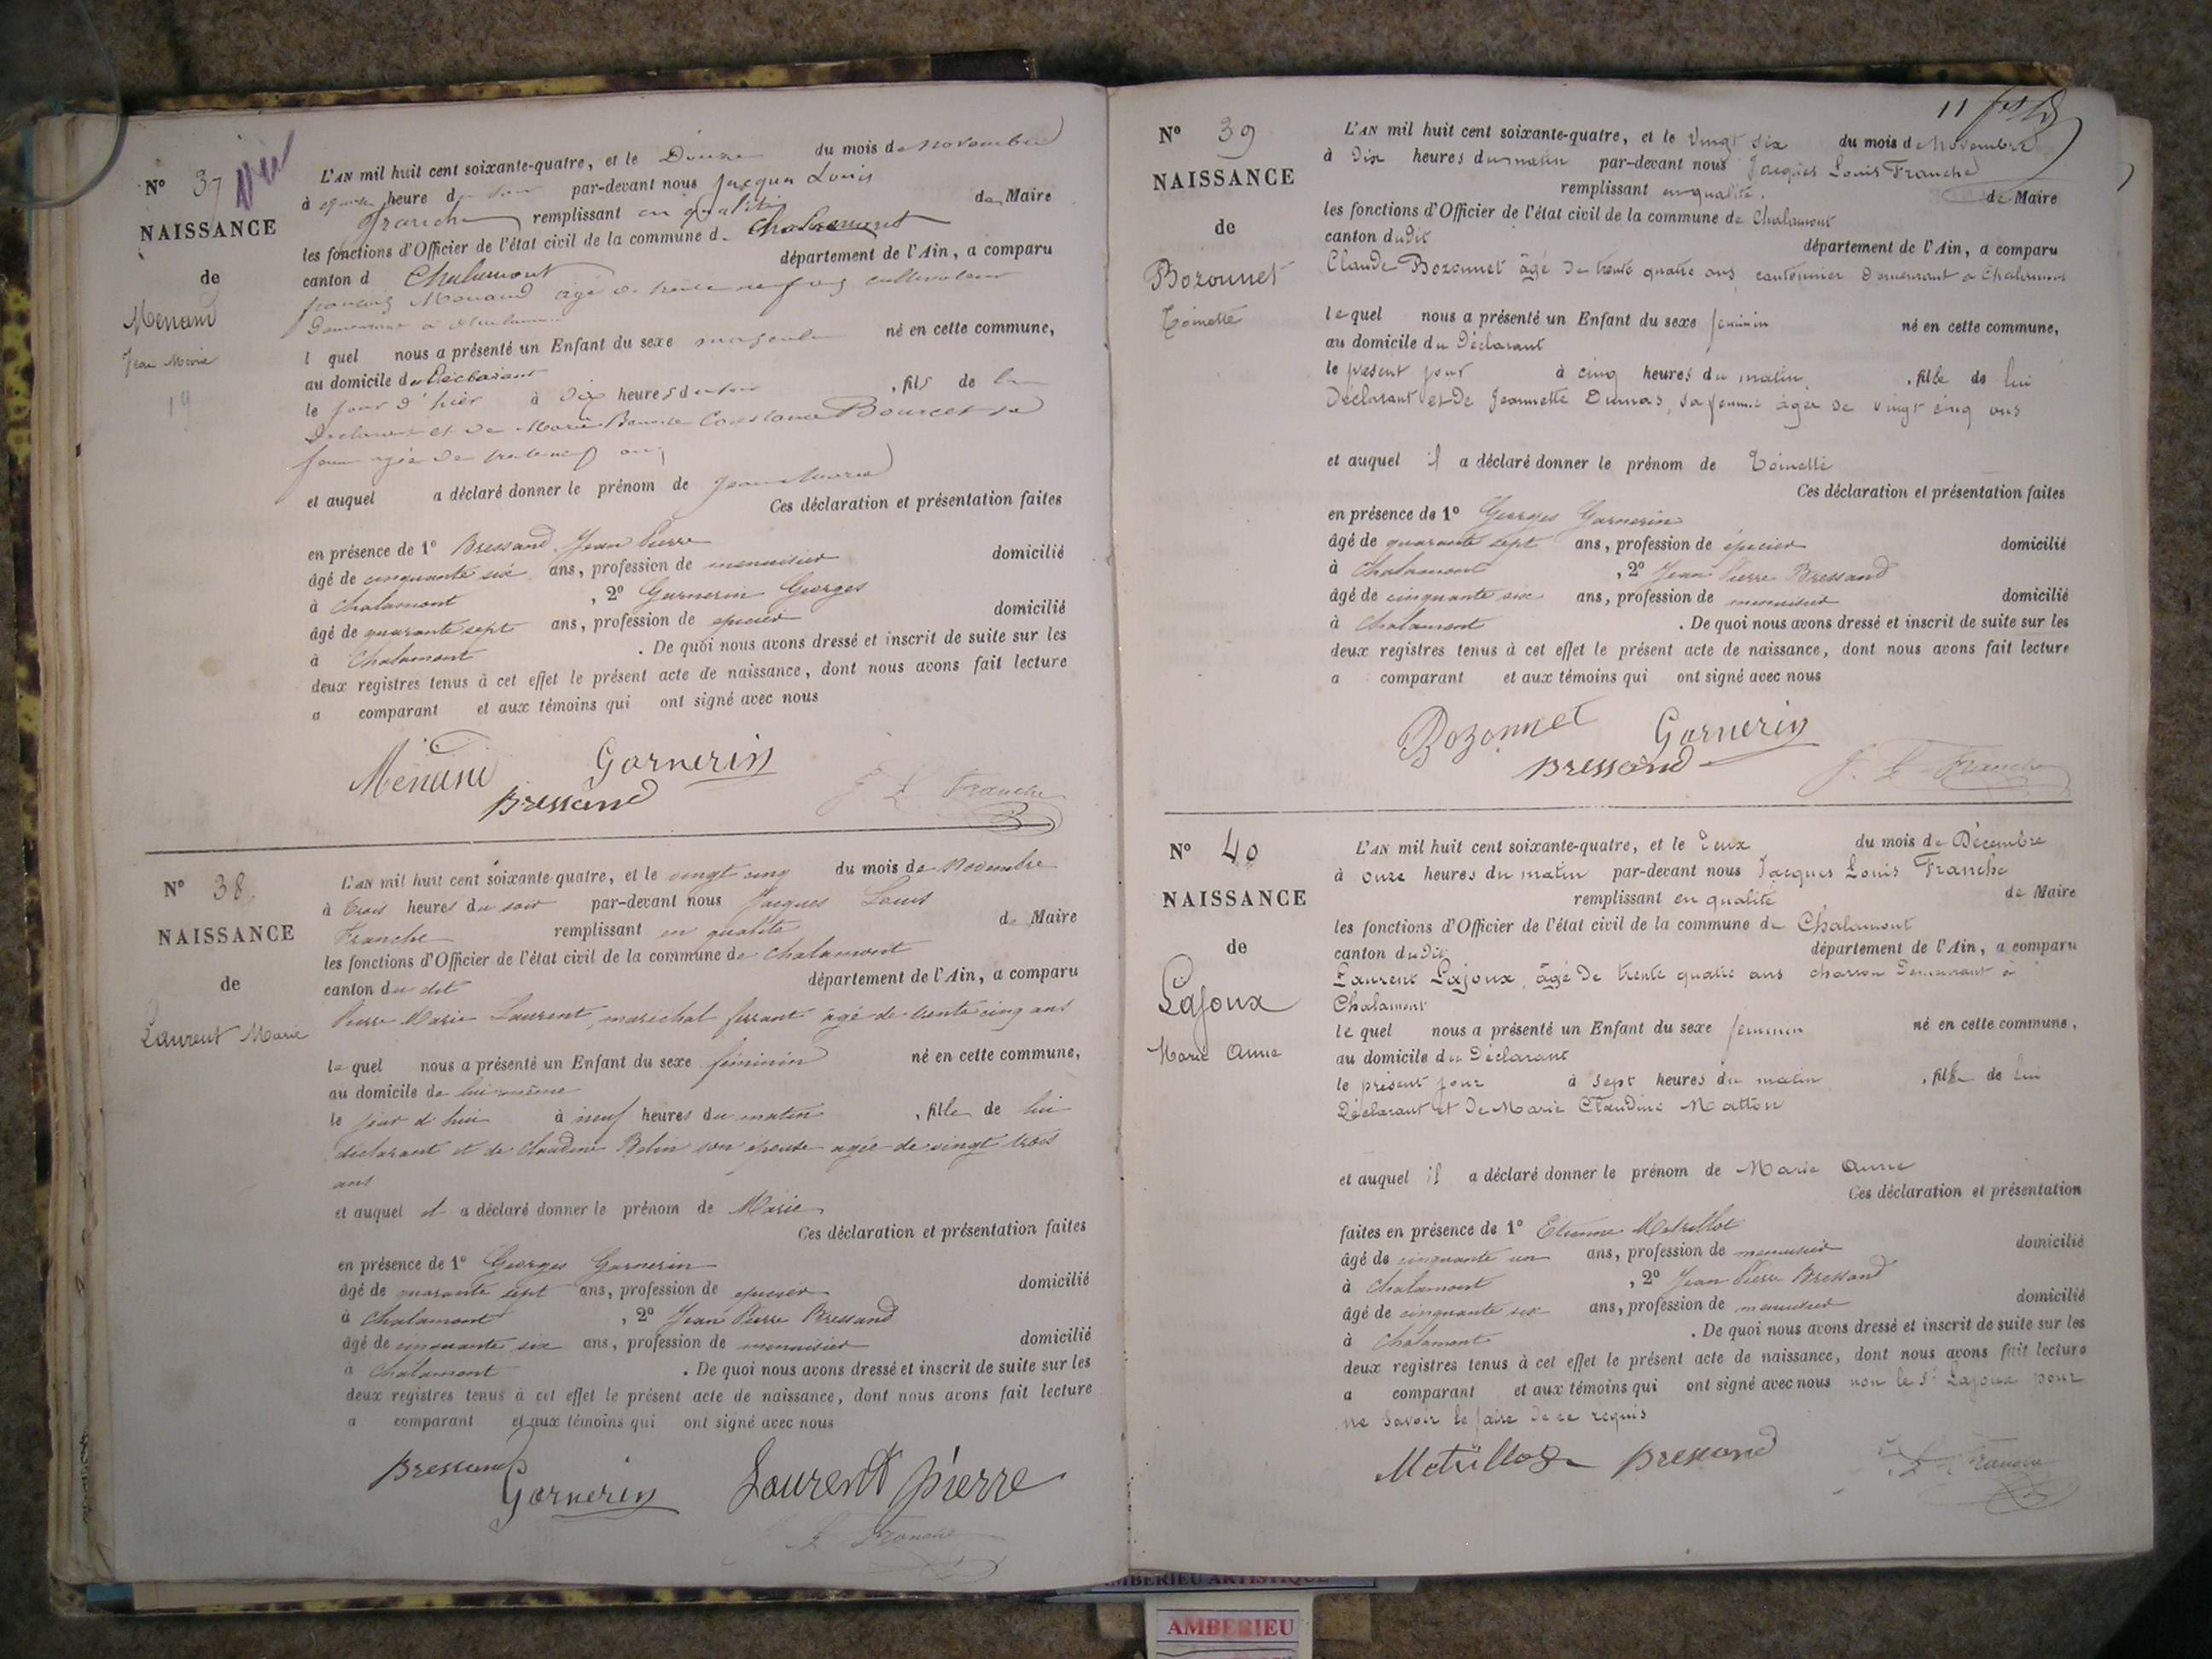 N° 37
NAISSANCE
de
Menand
Jean Marie
L'AN mil huit cent soixante-quatre, et le Douze du mois de Novembre
à heure d par-devant nous Jacques Louis
Franche remplissant en qualité de Maire
les fonctions d'Officier de l'état civil de la commune d. Chalamont
canton d Chalamont département de l'Ain, a comparu
françois Menand âgé de trente neuf ans cultivateur
Demeurant à Chalamont
l quel nous a présenté un Enfant du sexe masculin né en cette commune,
au domicile du Déclarant
le jour d'hier à dix heures du soir , fils de lui
Déclarant et de Marie Constance Bourcet sa
femme agée de trente neuf ans
et auquel a déclaré donner le prénom de Jean Marie
Ces déclaration et présentation faites
en présence de 1° Bressand Jean Pierre
âgé de cinquante six ans, profession de menuisier domicilié
à Chalamont , 2° Garnerin Georges
âgé de quarante sept ans, profession de epicier domicilié
à Chalamont . De quoi nous avons dressé et inscrit de suite sur les
deux registres tenus à cet effet le présent acte de naissance, dont nous avons fait lecture
a comparant et aux témoins qui ont signé avec nous
Menand Garnerin
Bressand J L Franche
N° 38
NAISSANCE
de
Laurent Marie
L'AN mil huit cent soixante-quatre, et le vingt cinq du mois de Novembre
à trois heures du soir par-devant nous Jacques Louis
Franche remplissant en qualité de Maire
les fonctions d'Officier de l'état civil de la commune de Chalamont
canton du dit département de l'Ain, a comparu
Pierre Marie Laurent, marichal ferrant âgé de trente cinq ans
le quel nous a présenté un Enfant du sexe féminin né en cette commune,
au domicile de lui même
le jour d'hui à neuf heures du matin , fille de lui
déclarant et de Claudine Belin son épouse agée de vingt trois
ans
et auquel il a déclaré donner le prénom de Marie
Ces déclaration et présentation faites
en présence de 1° Georges Garnerin
âgé de quarante sept ans, profession de epicier domicilié
à Chalamont , 2° Jean Pierre Bressand
âgé de cinquante six ans, profession de menuisier domicilié
à Chalamont . De quoi nous avons dressé et inscrit de suite sur les
deux registres tenus à cet effet le présent acte de naissance, dont nous avons fait lecture
a comparant et aux témoins qui ont signé avec nous
Bressand
Garnerin Laurent pierre
J L Franche
11
N° 39
NAISSANCE
de
Bozonnet
Toinette
L'AN mil huit cent soixante-quatre, et le Vingt six du mois de Novembre
à Dix heures du matin par-devant nous Jacques Louis Franche
remplissant en qualité. de Maire
les fonctions d'Officier de l'état civil de la commune de Chalamont
canton dudit département de l'Ain, a comparu
Claude Bozonnet âgé de trente quatre ans cantonnier demeurant à Chalamont
le quel nous a présenté un Enfant du sexe feminin né en cette commune,
au domicile du Déclarant
le présent jour à cinq heures du matin , fille de lui
Déclarant et de Jeannette Dumas, sa femme âgée de vingt cinq ans
et auquel il a déclaré donner le prénom de Toinette
Ces déclaration et présentation faites
en présence de 1° Georges Garnerin
âgé de quarante sept ans, profession de épicier domicilié
à Chalamont , 2° Jean Pierre Bressand
âgé de cinquante six ans, profession de menuisier domicilié
à Chalamont . De quoi nous avons dressé et inscrit de suite sur les
deux registres tenus à cet effet le présent acte de naissance, dont nous avons fait lecture
a comparant et aux témoins qui ont signé avec nous
Bozonnet Garnerin
Bressand J. L Franche
N° 40
NAISSANCE
de
Lajoux
Marie Anne
L'AN mil huit cent soixante-quatre, et le Deux du mois de Décembre
à onze heures du matin par-devant nous Jacques Louis Franche
remplissant en qualité de Maire
les fonctions d'Officier de l'état civil de la commune de Chalamont
canton dudit département de l'Ain, a comparu
Laurent Lajoux, âgé de trente quatre ans charron demeurant à
Chalamont
le quel nous a présenté un Enfant du sexe feminin né en cette commune,
au domicile du Déclarant
le présent jour à sept heures du matin , fille de lui
Déclarant et de Marie Claudine Matton
et auquel il a déclaré donner le prénom de Marie Anne
Ces déclaration et présentation
faites en présence de 1° Etienne Metrillot
âgé de cinquante un ans, profession de menuisier domicilié
à Chalamont , 2° Jean Pierre Bressand
âgé de cinquante six ans, profession de menuisier domicilié
à Chalamont . De quoi nous avons dressé et inscrit de suite sur les
deux registres tenus à cet effet le présent acte de naissance, dont nous avons fait lecture
a comparant et aux témoins qui ont signé avec nous non le Sr Lajoux pour
ne savoir le faire de ce requis
Metrillot Bressand J L Franche
AMBERIEU ARTISTIQUE
AMBERIEU